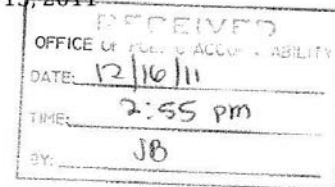 15, 2011
RECEIVED
OFFICE OF PUBLIC ACCOUNTABILITY
DATE: 12/16/11
TIME: 2:55 pm
BY: JB